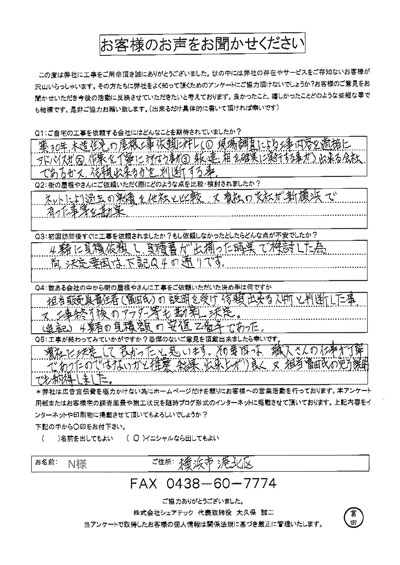 お客様のお声をお聞かせください
この度は弊社に工事をご用命頂き誠にありがとうございました。世の中には弊社の存在やサービスをご存知ないお客様が
沢山いらっしゃいます。その方たちに弊社をよく知って頂くためのアンケートにご協力頂けないでしょうか?お客様のご意見をお
聞かせいただき今後の活動に反映させていただきたいと考えております。良かったこと、嬉しかったことどのような些細な事で
も結構です。是非ご協力お願い致します。(出来るだけ具体的に書いて頂ければ幸いです)
Q1:ご自宅の工事を依頼する会社にはどんなことを期待されていましたか?
築30年木造住宅の屋根工事依頼に対し(① 現場調査により工事内容を適格に
アドバイス ② 作業を丁寧に対なう事 ③ 報連相を確実に実行する事が)出来る会社
であるか又、信頼出来るかを判断する事。
Q2:街の屋根やさんにご依頼いただく際にどのような点を比較・検討されましたか?
ネットにより近年の実績を他社と比較、又貴社の支社が新横浜で
有った事等を勘案
Q3:初回訪問後すぐに工事を依頼されましたか?もし依頼しなかったとしたらどんな点が不安でしたか?
4業者に見積依頼し、見積書が出揃った時点で検討した為
尚 決定要因は、下記Q4の通りです。
Q4:数ある会社の中から街の屋根やさんにご依頼いただいた決め手は何ですか
担当現場責任者(富田氏)の説明を受け信頼出来る人間と判断した事
又、工事終了後のアフター等も勘案し決定。
(追記) 4業者の見積額の安値2番手であった。
Q5:工事が終わってみていかがですか?忌憚のないご意見を頂戴出来ましたら幸いです。
貴社に決定して良かったと思います。
又 担当富田氏の
でも納得しました。
*弊社は広告宣伝費を極力かけない為にホームページだけを頼りにお客様への営業活動を行っております。本アンケート
用紙またはお客様宅の調査風景や施工状況を随時ブログ形式のインターネットに掲載させて頂いております。上記内容をイ
ンターネットや印刷物に掲載させて頂いてもよろしいでしょうか?
下記の中から〇印をお付下さい。
( )名前を出してもよい (〇)イニシャルなら出してもよい
お名前: N様 ご住所: 横浜市港北区
FAX 0438-60-7774
ご協力ありがとうございました。
株式会社シェアテック 代表取締役 大久保 誠二
当アンケートで取得したお客様の個人情報は関係法規に基づき厳正に管理いたします。
富田